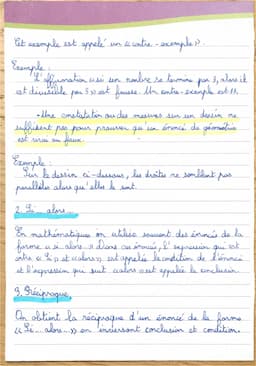 Cet exemple est appelé un « contre-exemple ».
Exemple :
L'affirmation « si un nombre se termine par 3, alors il
est divisible par 3 » est fausse. Un contre-exemple est 13.
• Une constatation ou des mesures sur un dessin ne
suffisent pas pour prouver qu'un énoncé de géométrie
est vrai ou faux.
Exemple :
Sur le dessin ci-dessous, les droites ne semblent pas
parallèles alors qu'elles le sont.
2. Si... alors...
En mathématiques on utilise souvent des énoncés de la
forme « si... alors... » Dans ces énoncés, l'expression qui est
entre « Si » et « alors » est appelée la condition de l'énoncé
et l'expression qui suit « alors » est appelée la conclusion.
3. Réciproque
On obtient la réciproque d'un énoncé de la forme
« Si... alors... » en inversant conclusion et condition.